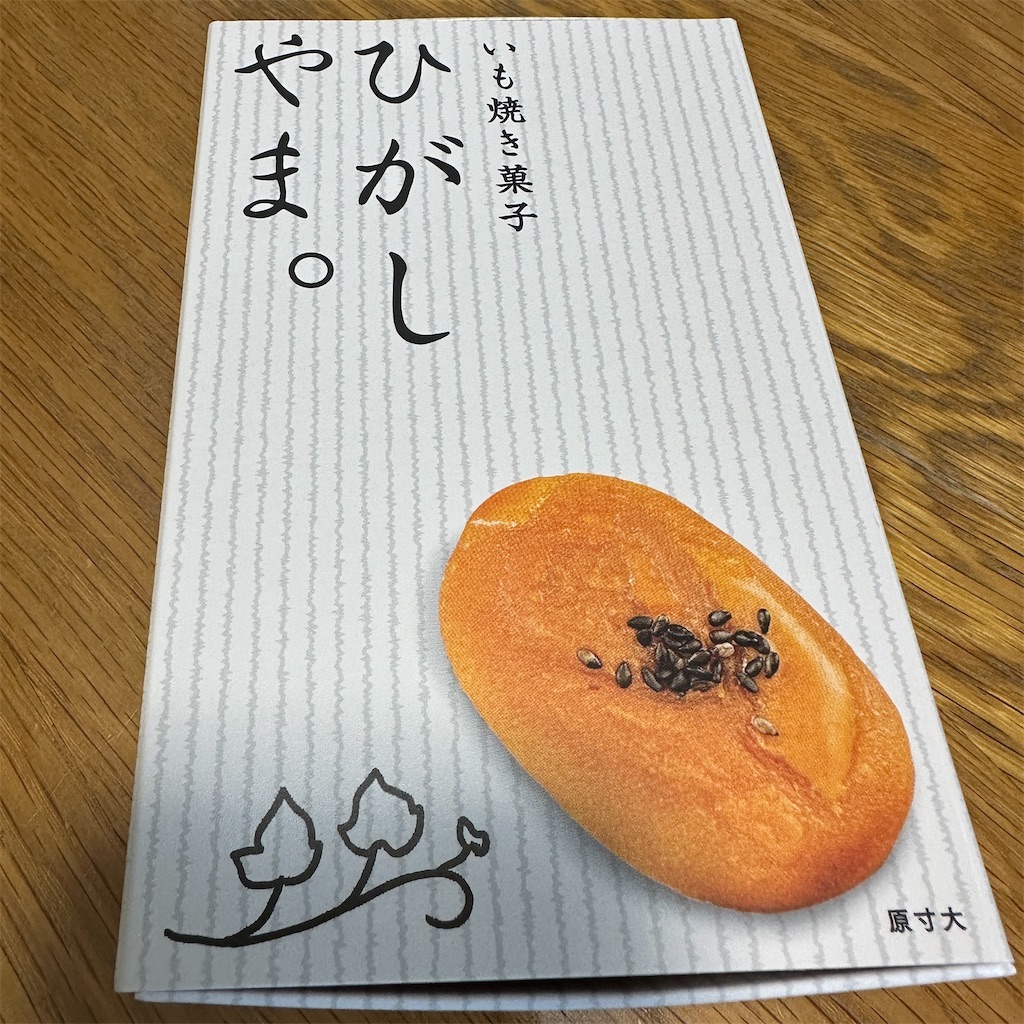 いも焼き菓子
ひがし
やま。
原寸大